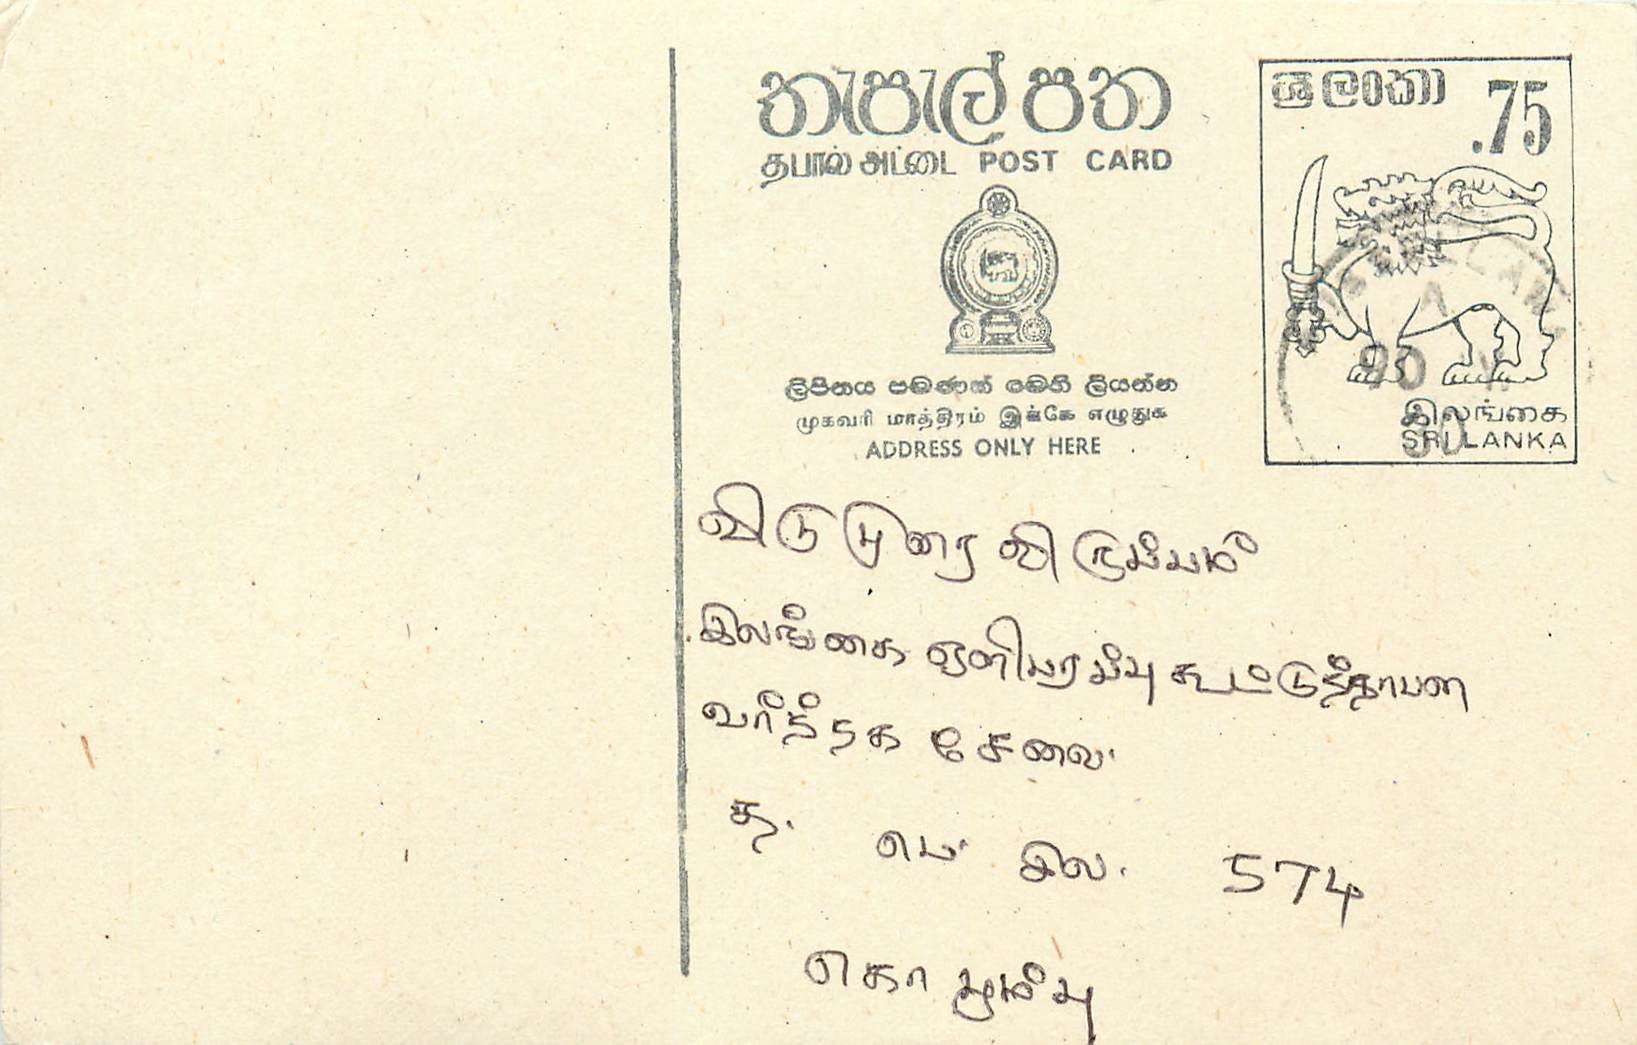 තැපැල් පත
தபால் அட்டை POST CARD
ශ්‍රී ලංකා .75
ලිපිනය පමණක් මෙහි ලියන්න
முகவரி மாத்திரம் இங்கே எழுதுக
ADDRESS ONLY HERE
இலங்கை
SRI LANKA
90
விருப்பம்
இலங்கை ஒலிபரப்பு கூட்டுத்தாபன
வர்த்தக சேவை.
த. பெ. இல. 574
கொழும்பு